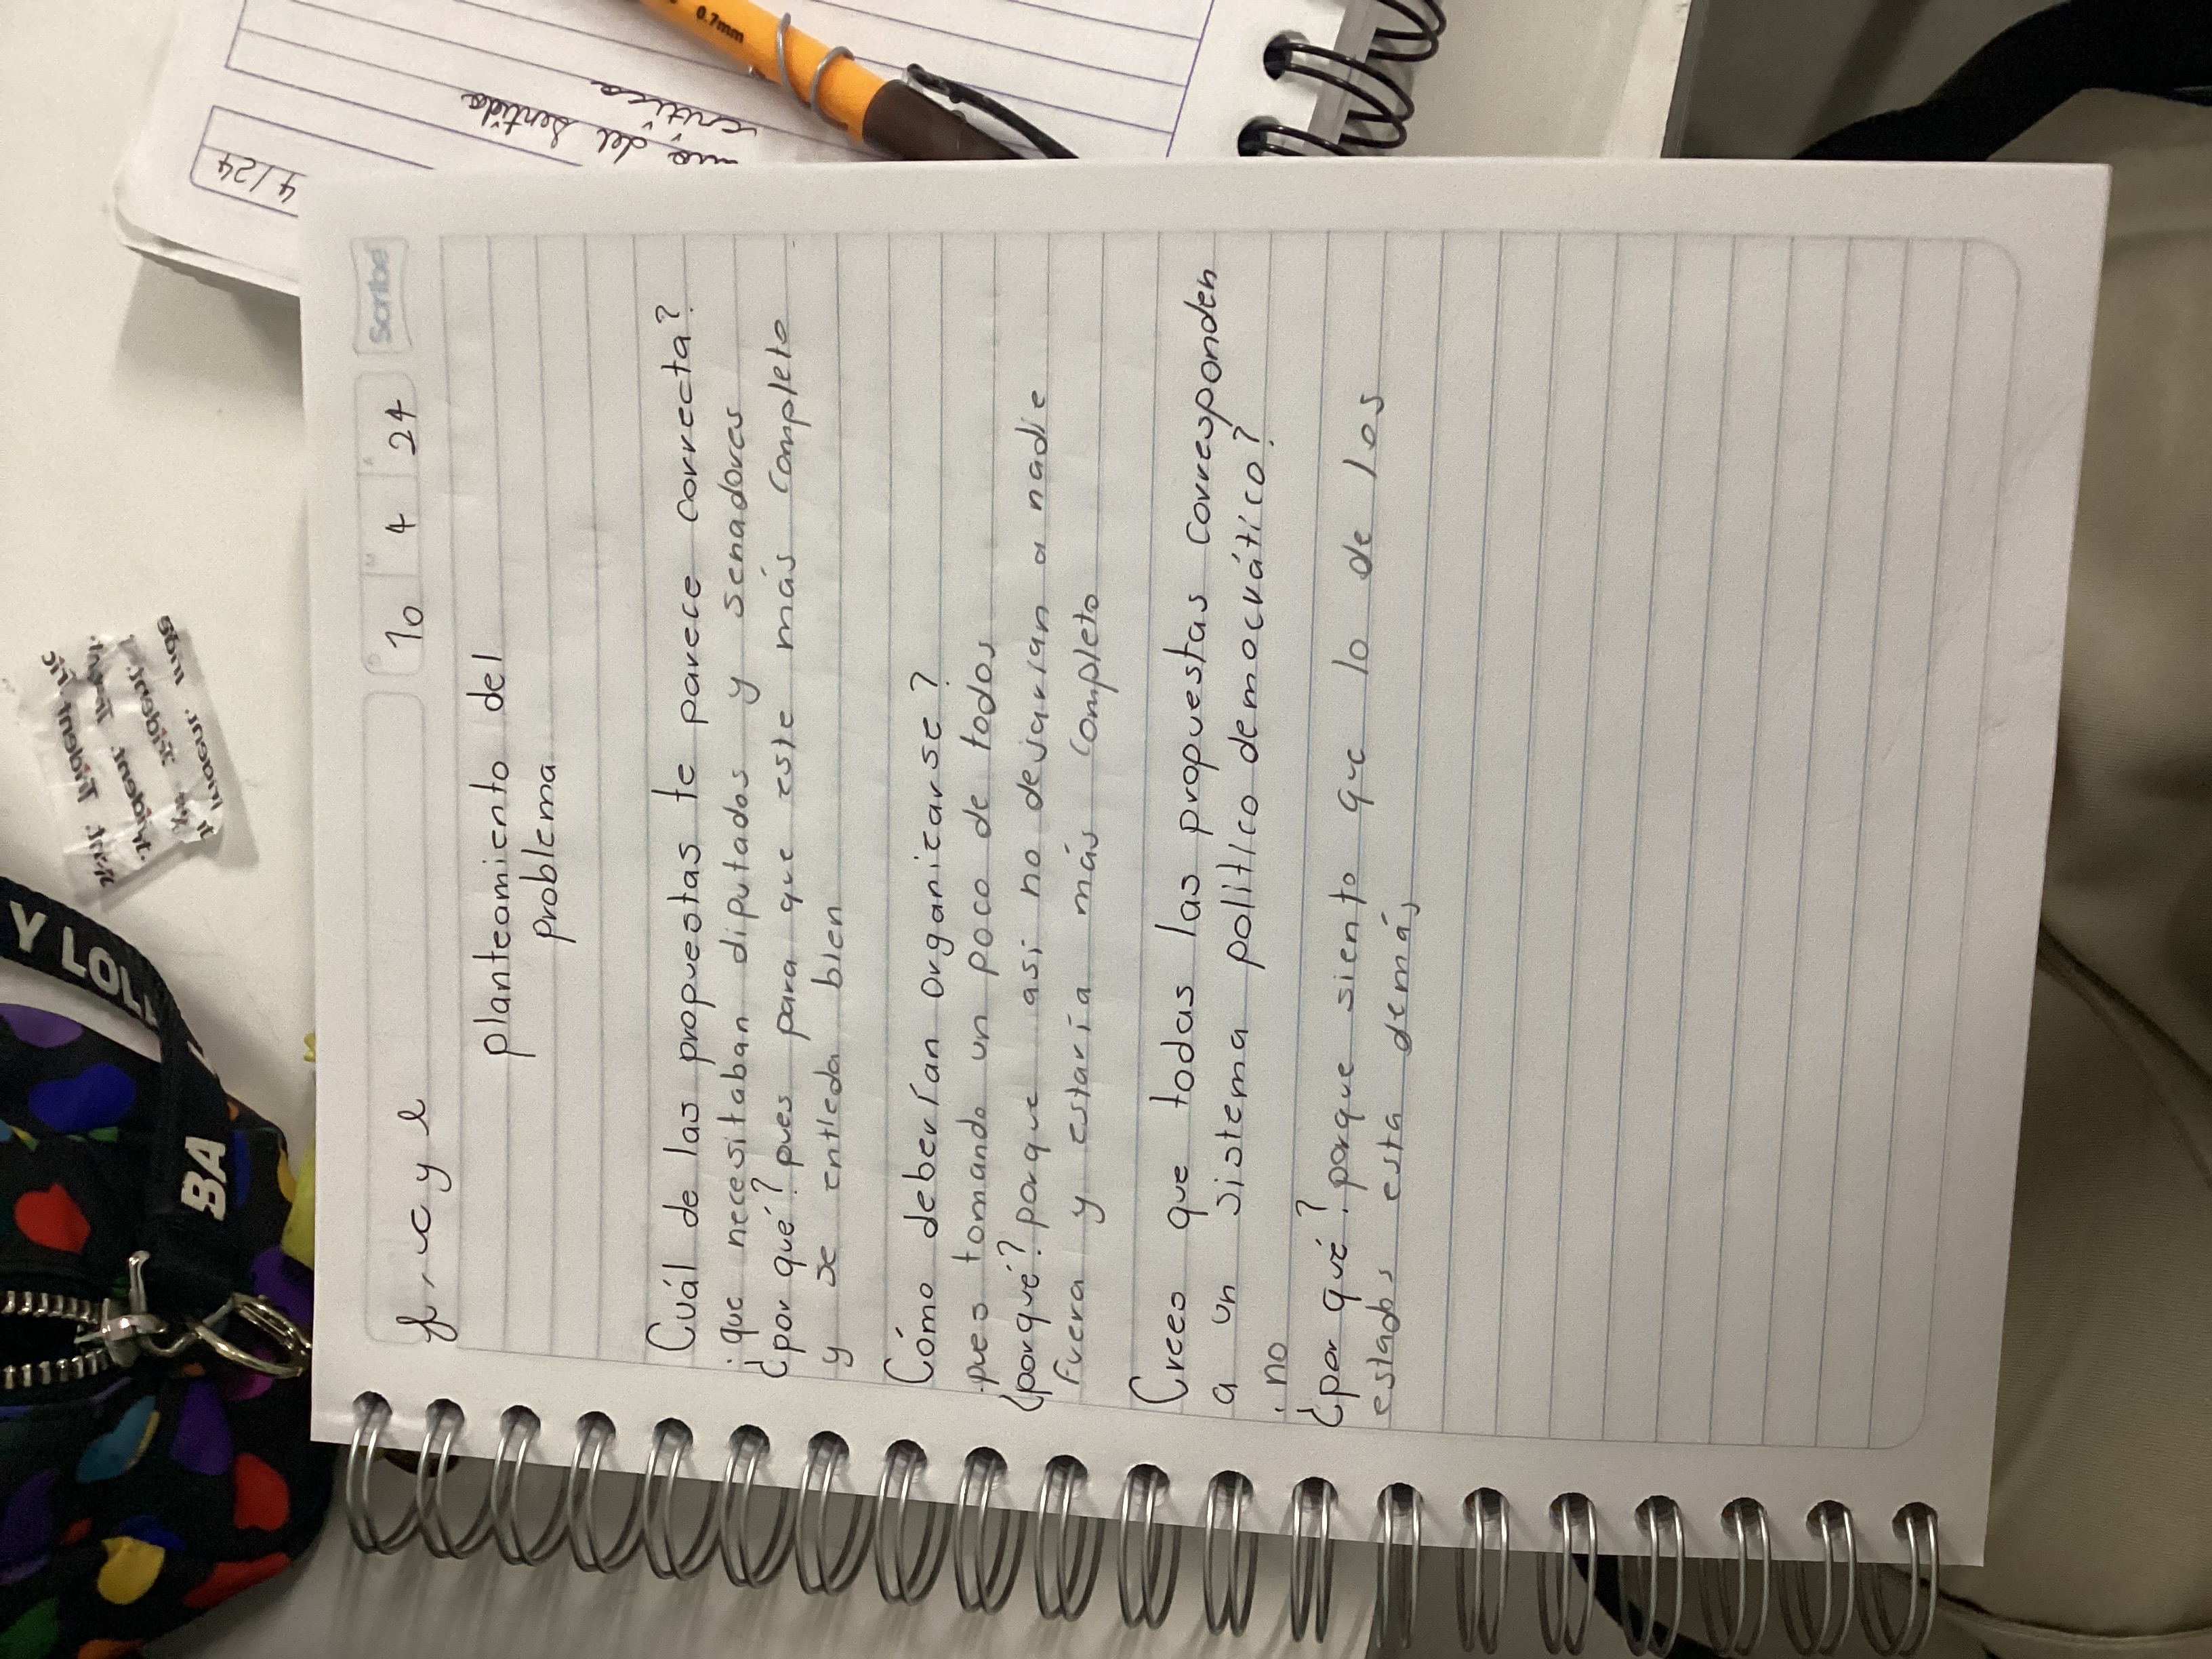 f, c y e
10 4 24
Scribe
planteamiento del
problema
Cuál de las propuestas te parece correcta?
·que necesitaban diputados y senadores
¿por qué? pues para que este más completo
y se entieda bien
Cómo deberían organizarse?
·pues tomando un poco de todos
¿porqué? porque asi no dejarian a nadie
fuera y estaría más completo
Crees que todas las propuestas corresponden
a un sistema político democrático?
·no
¿por qué? porque siento que lo de los
estados esta demás
4/24
del sentido
critica
0.7mm
Y LOL
BA
Trident. Trident.